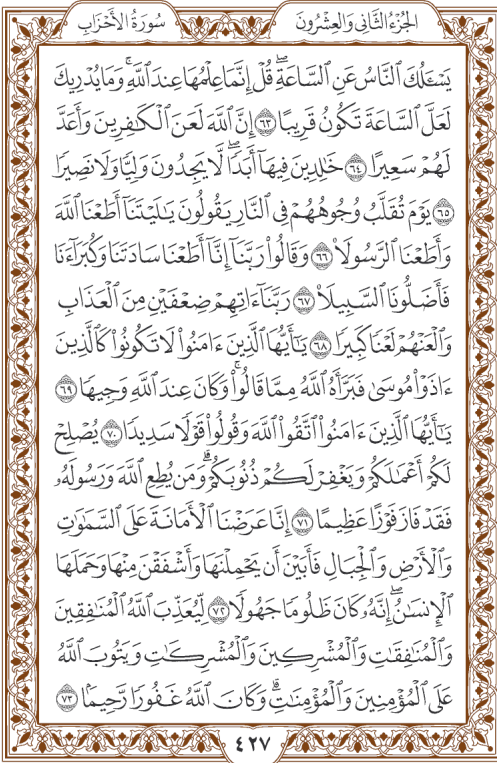 الجُزْءُ الثَّانِي وَالعِشْرُونَ سُورَةُ الأَحْزَابِ
يَسْـَٔلُكَ ٱلنَّاسُ عَنِ ٱلسَّاعَةِۖ قُلْ إِنَّمَا عِلْمُهَا عِندَ ٱللَّهِۚ وَمَا يُدْرِيكَ
لَعَلَّ ٱلسَّاعَةَ تَكُونُ قَرِيبًا ٦٣ إِنَّ ٱللَّهَ لَعَنَ ٱلْكَـٰفِرِينَ وَأَعَدَّ
لَهُمْ سَعِيرًا ٦٤ خَـٰلِدِينَ فِيهَآ أَبَدًاۖ لَّا يَجِدُونَ وَلِيًّا وَلَا نَصِيرًا
٦٥ يَوْمَ تُقَلَّبُ وُجُوهُهُمْ فِى ٱلنَّارِ يَقُولُونَ يَـٰلَيْتَنَآ أَطَعْنَا ٱللَّهَ
وَأَطَعْنَا ٱلرَّسُولَا۠ ٦٦ وَقَالُوا۟ رَبَّنَآ إِنَّآ أَطَعْنَا سَادَتَنَا وَكُبَرَآءَنَا
فَأَضَلُّونَا ٱلسَّبِيلَا۠ ٦٧ رَبَّنَآ ءَاتِهِمْ ضِعْفَيْنِ مِنَ ٱلْعَذَابِ
وَٱلْعَنْهُمْ لَعْنًا كَبِيرًا ٦٨ يَـٰٓأَيُّهَا ٱلَّذِينَ ءَامَنُوا۟ لَا تَكُونُوا۟ كَٱلَّذِينَ
ءَاذَوْا۟ مُوسَىٰ فَبَرَّأَهُ ٱللَّهُ مِمَّا قَالُوا۟ۚ وَكَانَ عِندَ ٱللَّهِ وَجِيهًا ٦٩
يَـٰٓأَيُّهَا ٱلَّذِينَ ءَامَنُوا۟ ٱتَّقُوا۟ ٱللَّهَ وَقُولُوا۟ قَوْلًا سَدِيدًا ٧٠ يُصْلِحْ
لَكُمْ أَعْمَـٰلَكُمْ وَيَغْفِرْ لَكُمْ ذُنُوبَكُمْۗ وَمَن يُطِعِ ٱللَّهَ وَرَسُولَهُۥ
فَقَدْ فَازَ فَوْزًا عَظِيمًا ٧١ إِنَّا عَرَضْنَا ٱلْأَمَانَةَ عَلَى ٱلسَّمَـٰوَٰتِ
وَٱلْأَرْضِ وَٱلْجِبَالِ فَأَبَيْنَ أَن يَحْمِلْنَهَا وَأَشْفَقْنَ مِنْهَا وَحَمَلَهَا
ٱلْإِنسَـٰنُۖ إِنَّهُۥ كَانَ ظَلُومًا جَهُولًا ٧٢ لِّيُعَذِّبَ ٱللَّهُ ٱلْمُنَـٰفِقِينَ
وَٱلْمُنَـٰفِقَـٰتِ وَٱلْمُشْرِكِينَ وَٱلْمُشْرِكَـٰتِ وَيَتُوبَ ٱللَّهُ
عَلَى ٱلْمُؤْمِنِينَ وَٱلْمُؤْمِنَـٰتِۗ وَكَانَ ٱللَّهُ غَفُورًا رَّحِيمًۢا ٧٣
٤٢٧